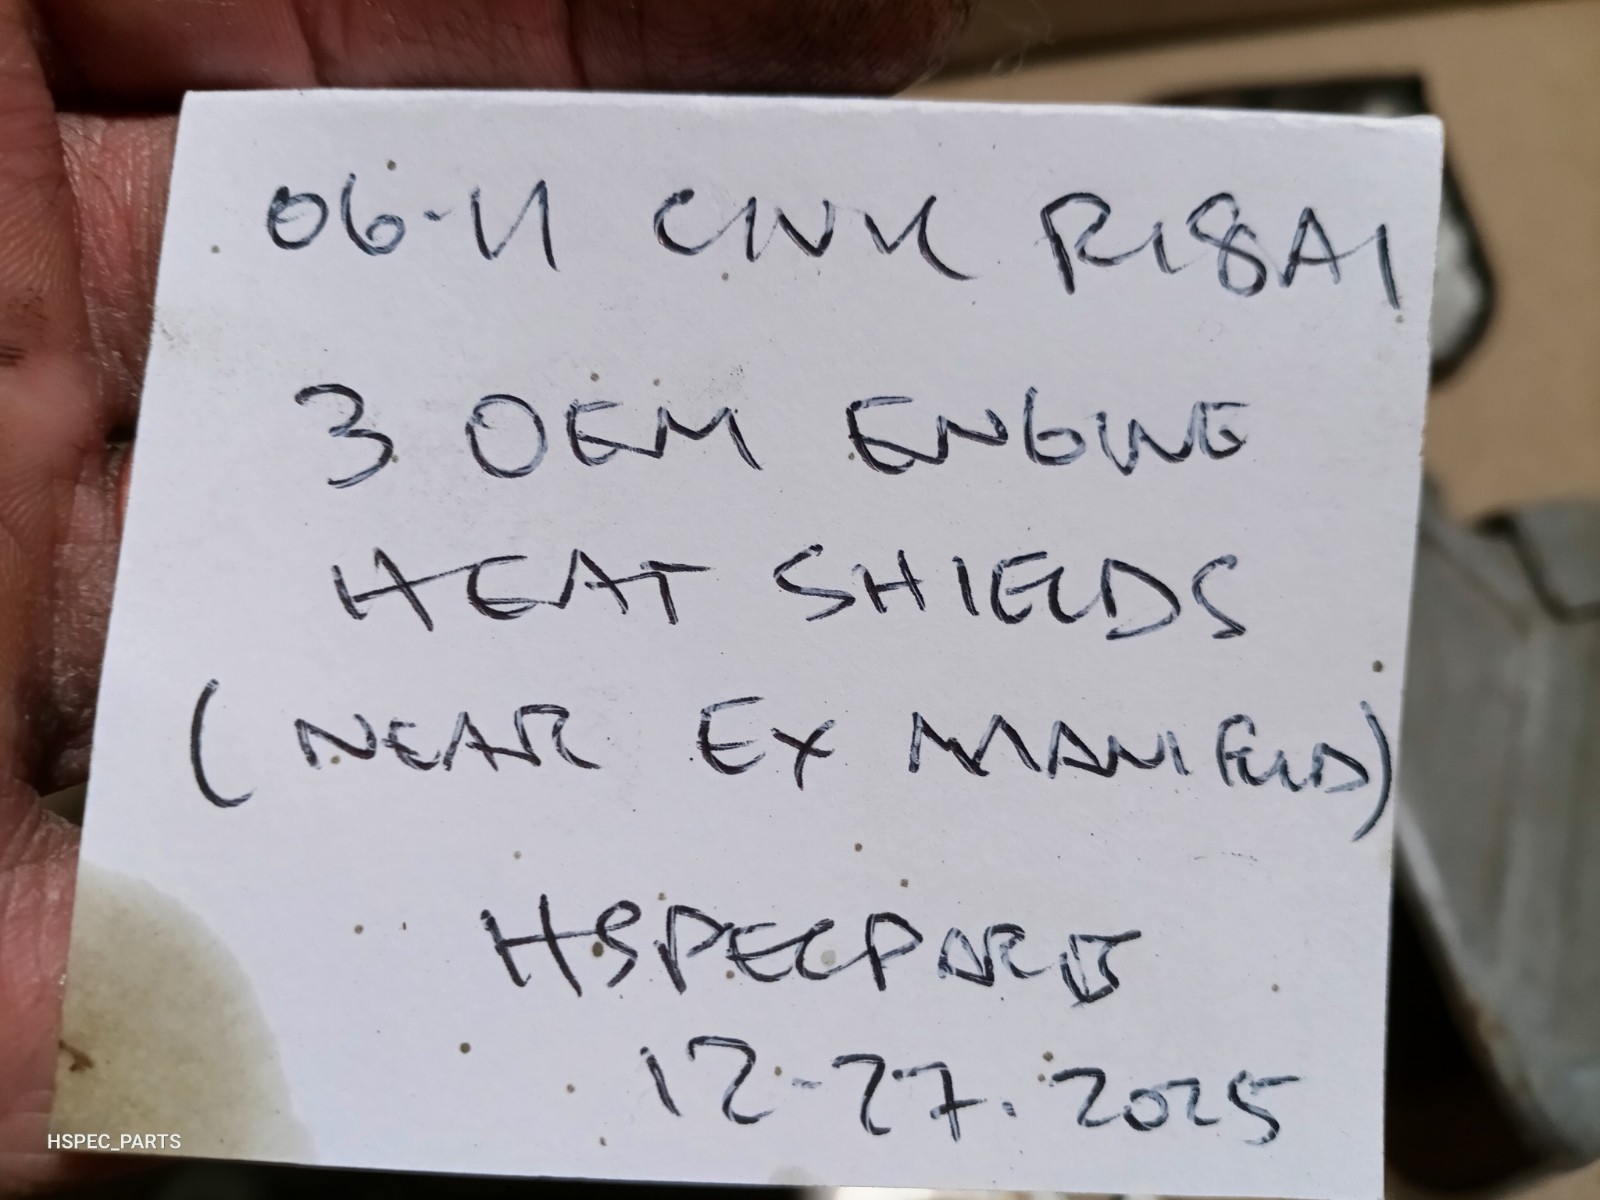 06-11 CIVIC R18A1
3 OEM ENGINE
HEAT SHIELDS
( NEAR EX MANIFOLD)
HSPECPARTS
12-27.2025
HSPEC_PARTS